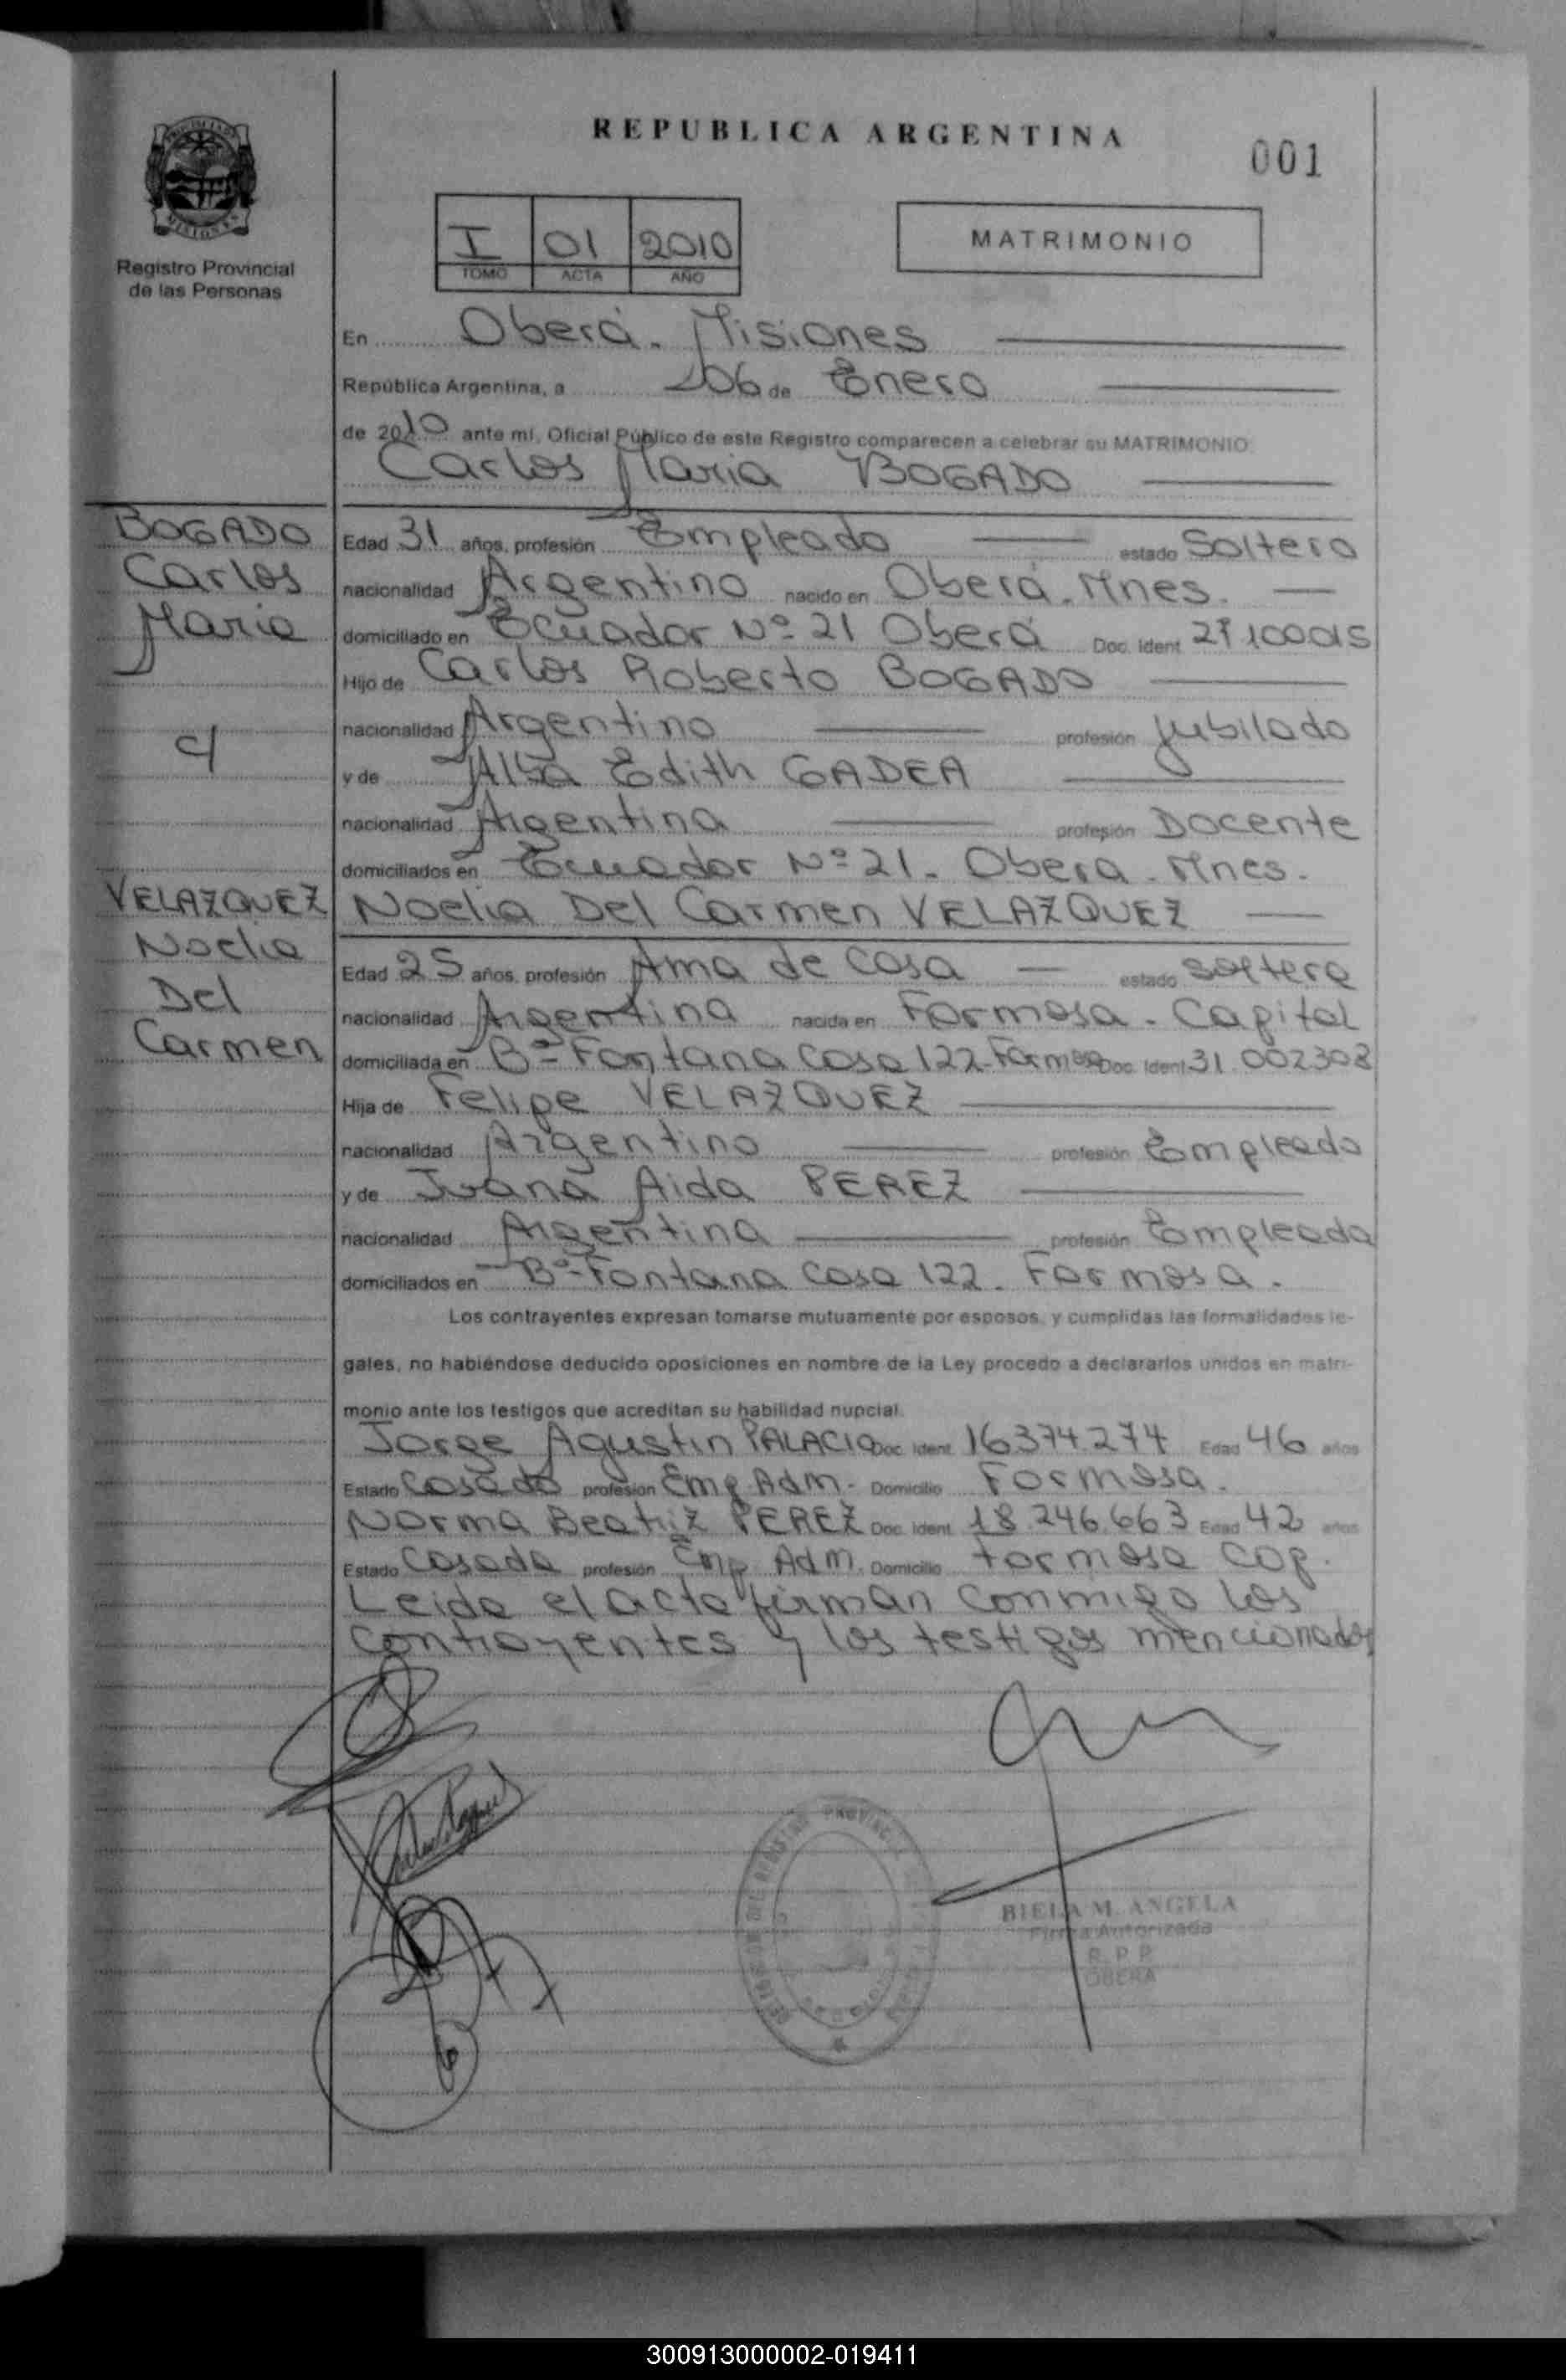 REPUBLICA ARGENTINA
001
I 01 2010
TOMO ACTA AÑO
MATRIMONIO
Registro Provincial
de las Personas
En Oberá. Misiones
República Argentina, a 06 de Enero
de 2010 ante mi, Oficial Público de este Registro comparecen a celebrar su MATRIMONIO:
Carlos Maria BOGADO
BOGADO
Carlos
Maria
c/
VELAZQUEZ
Noelia
Del
Carmen
Edad 31 años, profesión Empleado estado Soltero
nacionalidad Argentino nacido en Oberá. Mnes.
domiciliado en Ecuador Nº 21 Oberá Doc. Ident.
Hijo de Carlos Roberto BOGADO
nacionalidad Argentino profesión Jubilado
y de Alba Edith GADEA
nacionalidad Argentina profesión Docente
domiciliados en Ecuador Nº 21. Obera. Mnes.
Noelia Del Carmen VELAZQUEZ
Edad 25 años, profesión Ama de Casa estado Soltera
nacionalidad Argentina nacida en Formosa. Capital
domiciliada en Bº Fontana Casa 122. Formosa Doc. Ident 31.002308
Hija de Felipe VELAZQUEZ
nacionalidad Argentino profesión Empleado
y de Juana Aida PEREZ
nacionalidad Argentina profesión Empleada
domiciliados en Bº Fontana Casa 122. Formosa.
Los contrayentes expresan tomarse mutuamente por esposos, y cumplidas las formalidades le-
gales, no habiéndose deducido oposiciones en nombre de la Ley procedo a declararlos unidos en matri-
monio ante los testigos que acreditan su habilidad nupcial.
Jorge Agustin PALACIO Doc. Ident. 16374274 Edad 46 años
Estado Casado profesión Emp. Adm. Domicilio Formosa.
Norma Beatriz PEREZ Doc. Ident. 18.246.663 Edad 42 años
Estado Casada profesión Emp. Adm. Domicilio Formosa Cap.
Leida el acta firman conmigo los
contrayentes y los testigos mencionados
BIELA M. ANGELA
Firma Autorizada
R. P. P.
OBERA
300913000002-019411